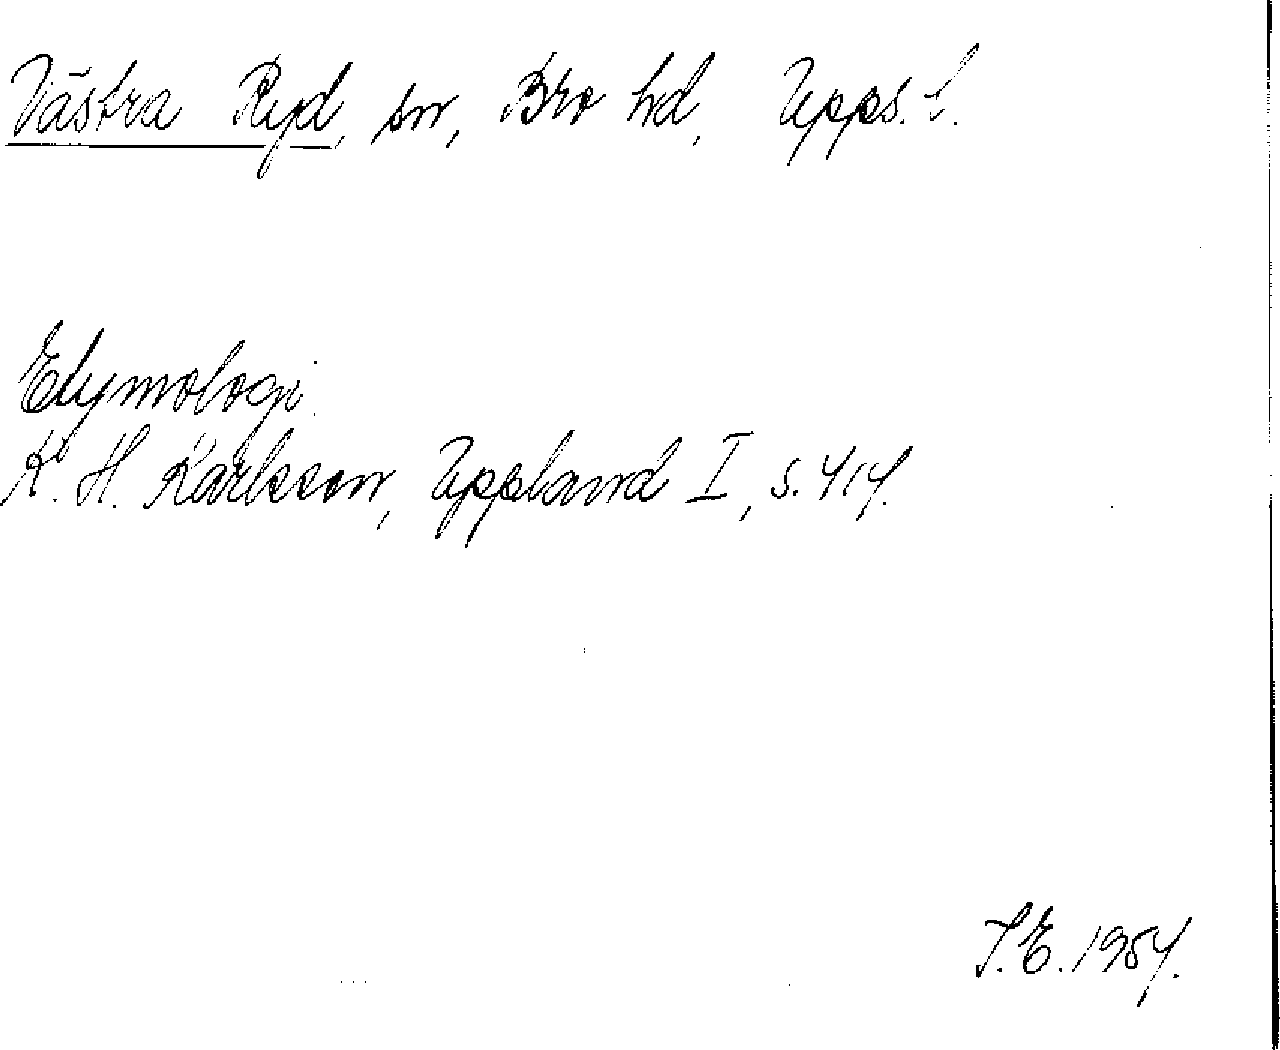 Västra Ryd, sn, Bro hd, Upps. l.
Etymologi.
K. H. Karlsson, Uppland I, s. 414.
I.E. 1954.